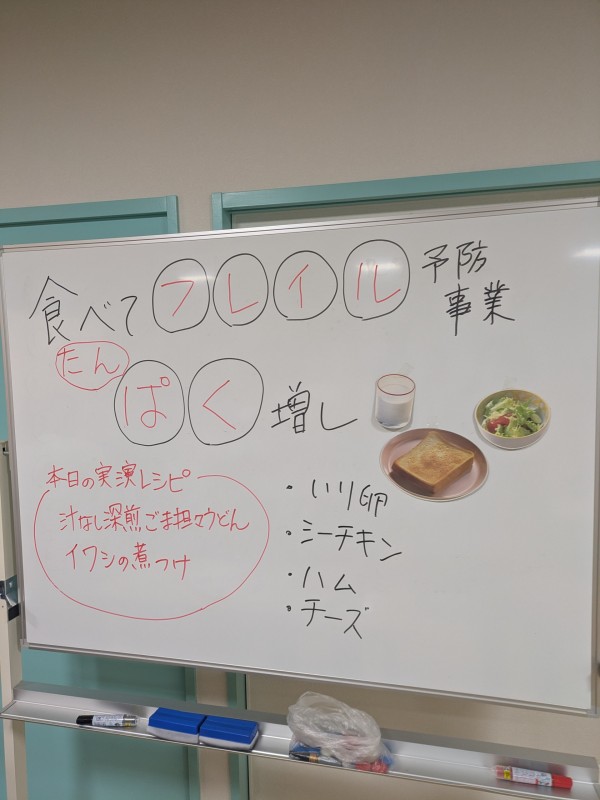 食べてフレイル予防
事業
たん
ぱく増し
本日の実演レシピ
汁なし深煎ごま担々うどん
イワシの煮つけ
・いり卵
・ミーチキン
・ハム
・チーズ